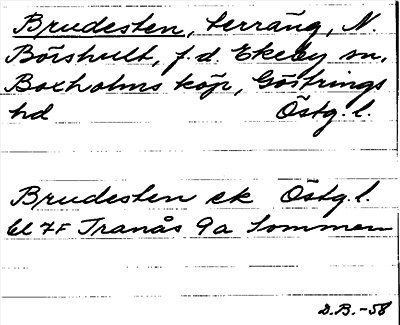 Brudesten, terräng, N.
Börshult, f.d. Ekeby sn,
Boxholms köp, Göstrings
hd Östg. l.
Brudesten ek Östg. l.
bl 7F Tranås 9a Sommen
D.B.-58